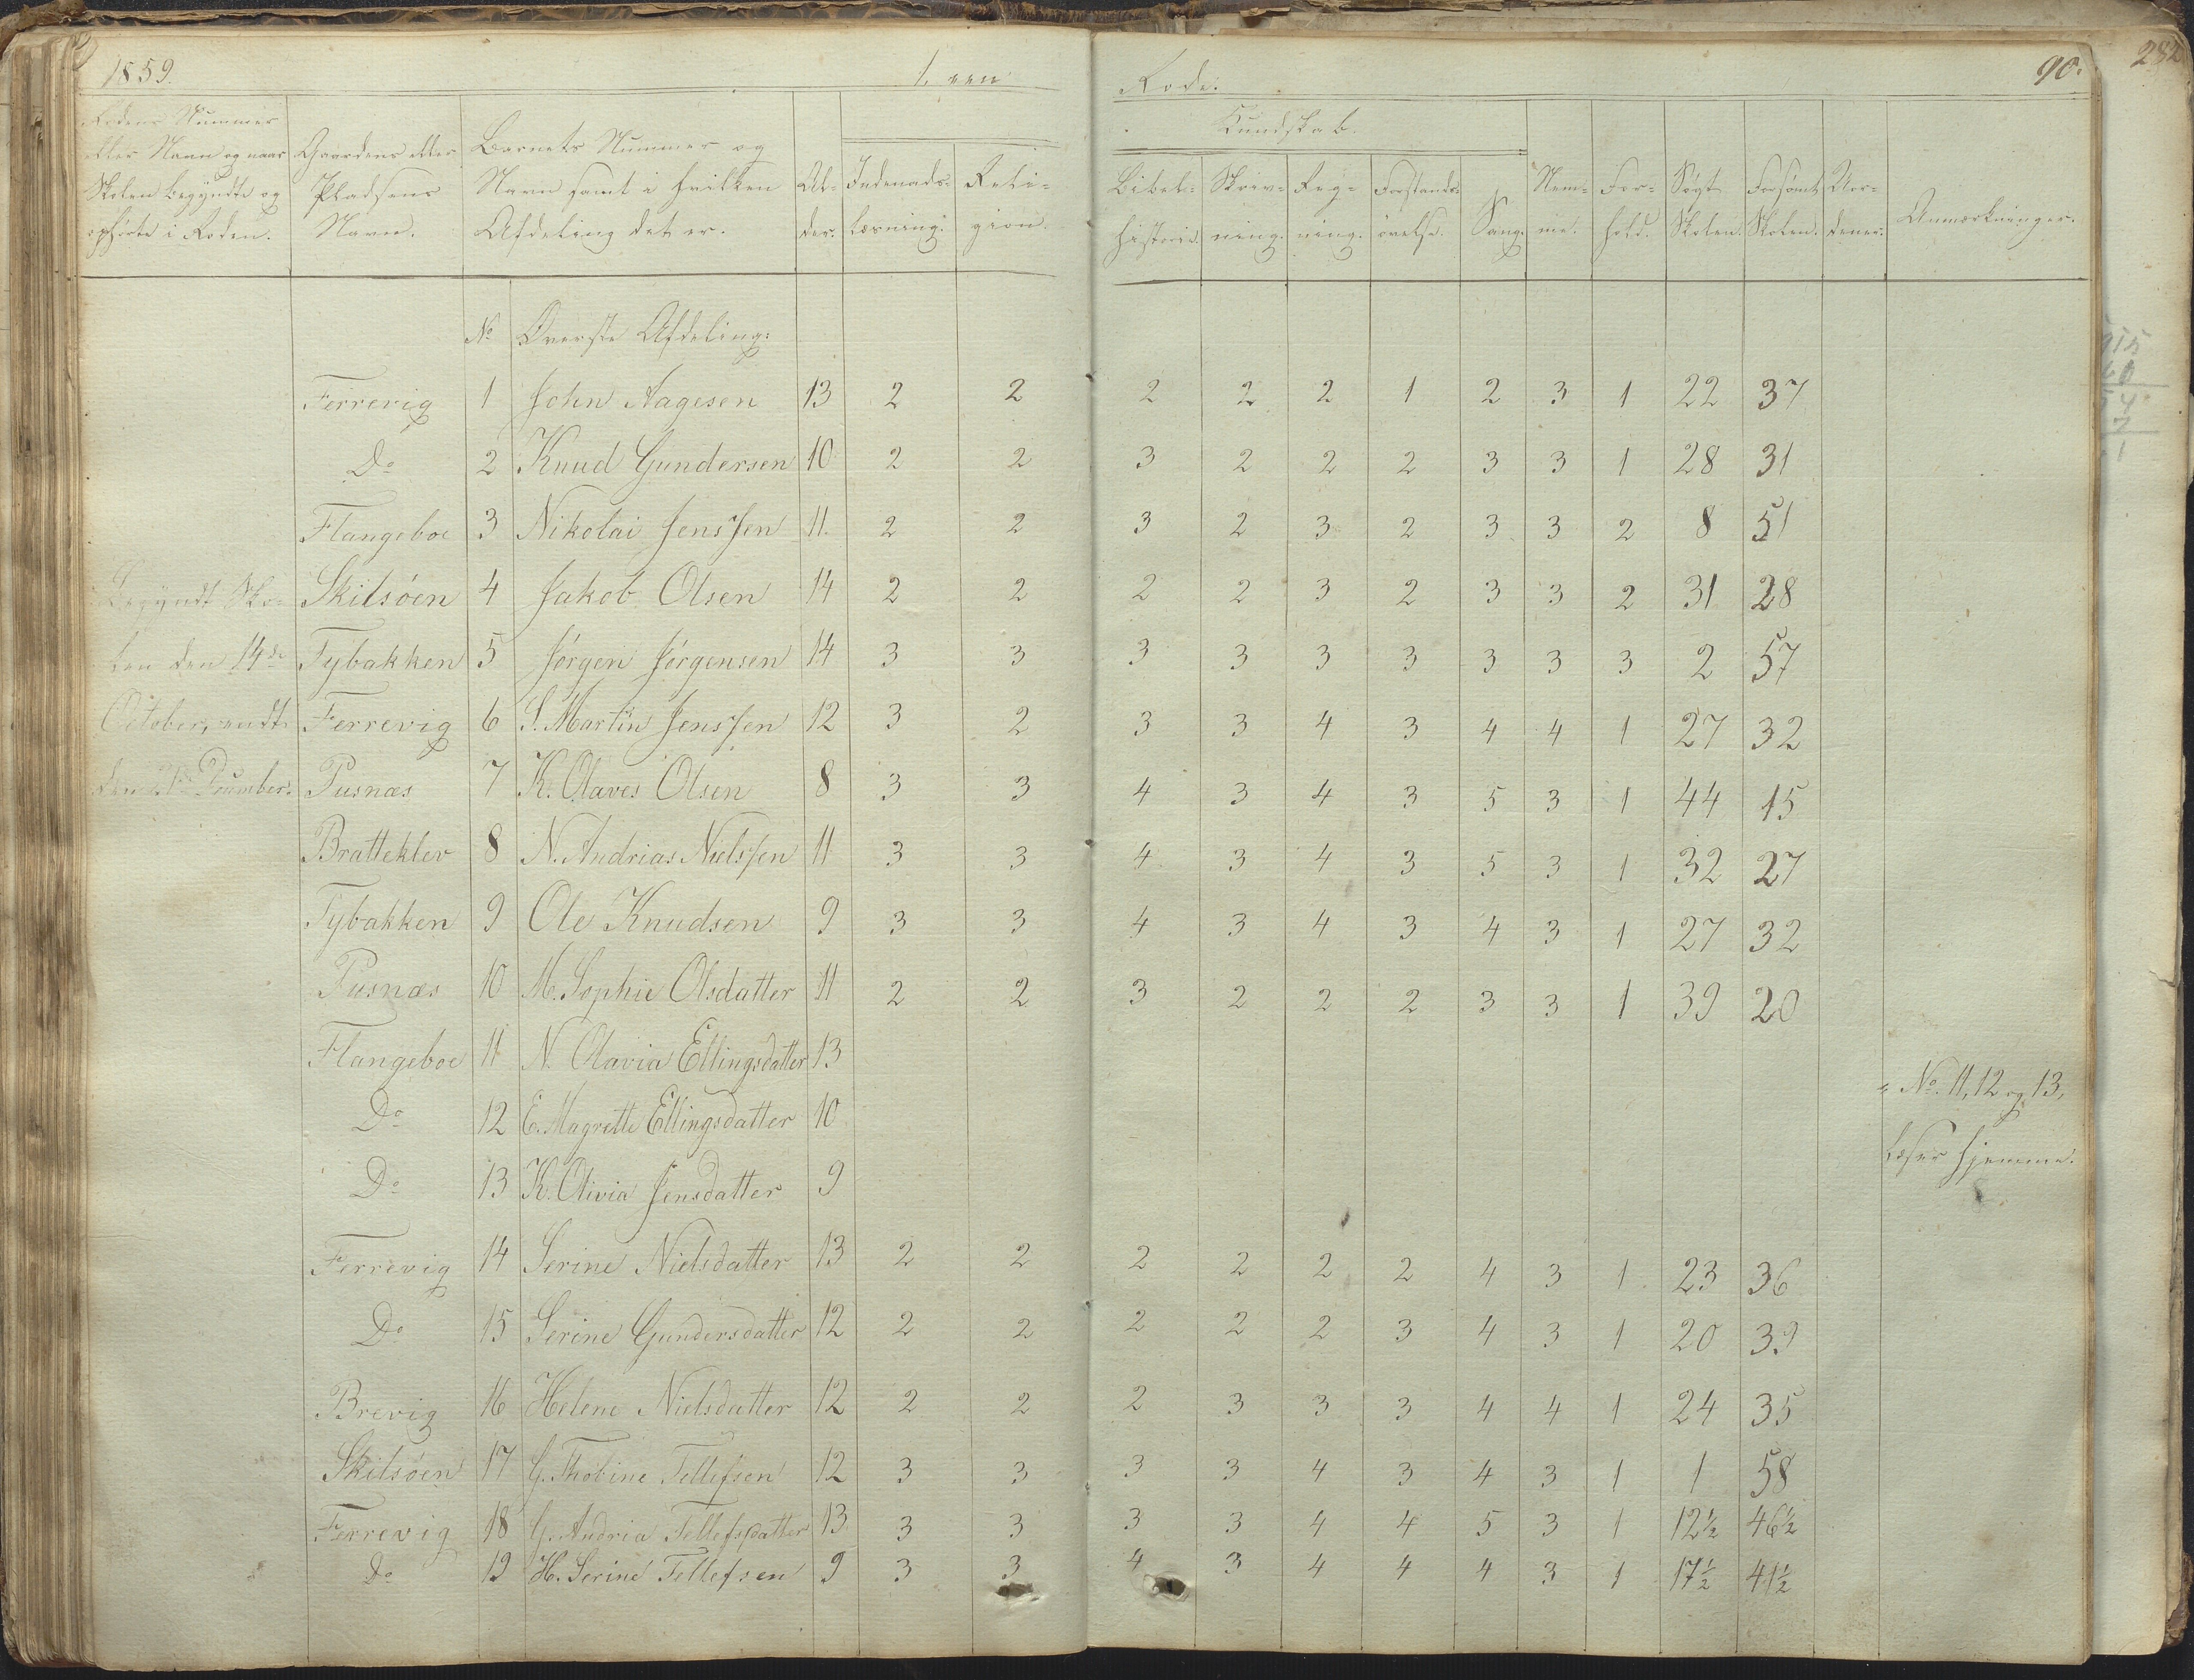 1859.
1. een
Rode.
90.
282
Rodens Nummer
eller Navn og naar
Skolen begyndte og
ophørte i Roden.
Gaardens eller
Pladsens
Navn.
Barnets Nummer og
Navn samt i hvilken
Afdeling det er.
Al-
der.
Indenads-
læsning.
Reli-
gion.
Kundskab.
Bibel-
historie.
Skriv-
ning.
Reg-
ning.
Forstands-
øvelse.
Sang.
Nem-
me.
For-
hold.
Søgt
Skolen.
Forsømt
Skolen.
Uor-
dener.
Anmærkninger.
No Øverste Afdeling:
Ferrevig 1 John Aagesen 13 2 2 2 2 2 1 2 3 1 22 37
Do 2 Knud Gundersen 10 2 2 3 2 2 2 3 3 1 28 31
Flangeboe 3 Nikolai Jenssen 11. 2 2 3 2 3 2 3 3 2 8 51
Begyndt Sko- Skilsöen 4 Jakob Olsen 14 2 2 2 2 3 2 3 3 2 31 28
len den 14de Tybakken 5 Jörgen Jörgensen 14 3 3 3 3 3 3 3 3 3 2 57
October, endt Ferrevig 6 S. Martin Jenssen 12 3 2 3 3 4 3 4 4 1 27 32
den 21de December. Pusnæs 7 K. Olaves Olsen 8 3 3 4 3 4 3 5 3 1 44 15
Bratteklev 8 N. Andrias Nielssen 11 3 3 4 3 4 3 5 3 1 32 27
Tybakken 9 Ole Knudsen 9 3 3 4 3 4 3 4 3 1 27 32
Pusnæs 10 M. Sophie Olsdatter 11 2 2 3 2 2 2 3 3 1 39 20
Flangeboe 11 N. Olavia Ellingsdatter 13
Do 12 E. Magrette Ellingsdatter 10
No. 11, 12 og 13,
læser hjemme.
Do 13 K. Olivia Jensdatter 9
Ferrevig 14 Serine Nielsdatter 13 2 2 2 2 2 2 4 3 1 23 36
Do 15 Serine Gundersdatter 12 2 2 2 2 2 3 4 3 1 20 39
Brevig 16 Helene Nielsdatter 12 2 2 2 3 3 3 4 4 1 24 35
Skilsöen 17 G. Thobine Tellefsen 12 3 3 3 3 4 3 4 3 1 1 58
Ferrevig 18 G. Andria Tellefsdatter 13 3 3 3 3 4 4 5 3 1 12½ 46½
Do 19 H. Serine Tellefsen 9 3 3 4 3 4 4 4 3 1 17½ 41½